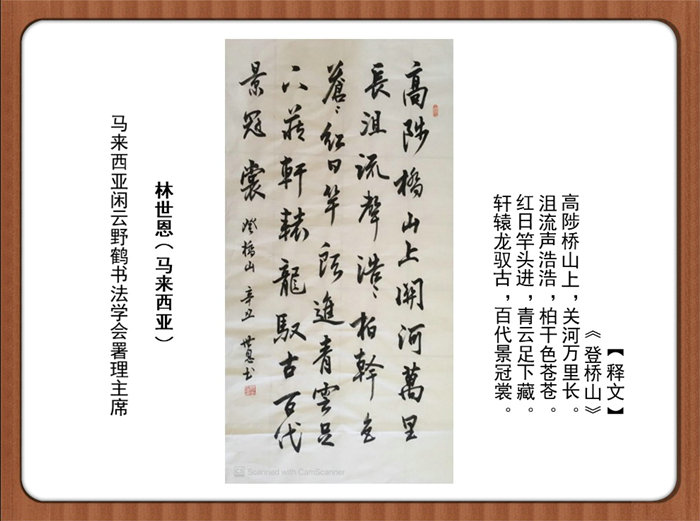 【释文】
《登桥山》
高陟桥山上，关河万里长。
沮流声浩浩，柏干色苍苍。
红日竿头进，青云足下藏。
轩辕龙驭古，百代景冠裳。
高陟橋山上關河萬里
長沮流聲浩〻柏幹色
蒼〻紅日竿頭進青雲足
下藏軒轅龍馭古百代
景冠裳 登橋山 辛丑 世恩书
林世恩（马来西亚）
马来西亚闲云野鹤书法学会署理主席
CS Scanned with CamScanner